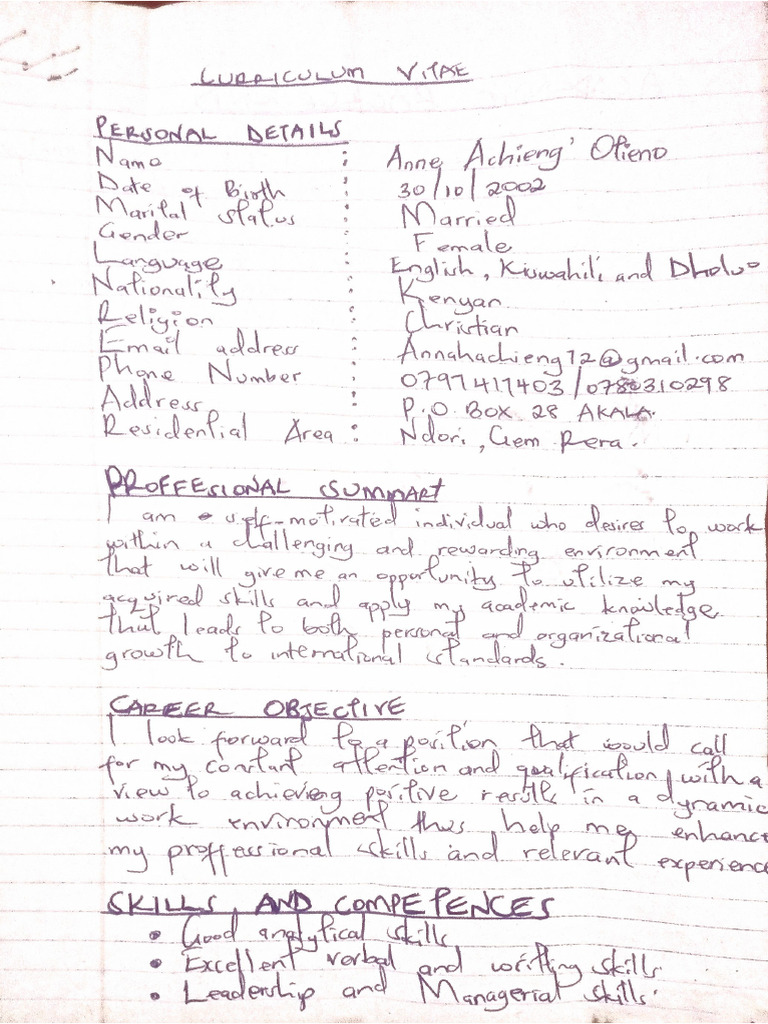 CURRICULUM VITAE
PERSONAL DETAILS
Name : Anne Achieng' Otieno
Date of Birth : 30/10/2002
Marital status : Married
Gender : Female
Language : English, Kiswahili and Dholuo
Nationality : Kenyan
Religion : Christian
Email address : Annahachieng12@gmail.com
Phone Number : 0797417403/0780310298
Address : P.O BOX 28 AKALA.
Residential Area : Ndori, Gem Rera.
PROFFESIONAL SUMMARY
I am a self-motivated individual who desires to work
within a challenging and rewarding environment
that will give me an opportunity to utilize my
acquired skills and apply my academic knowledge
that leads to both personal and organizational
growth to international standards.
CAREER OBJECTIVE
I look forward to a position that would call
for my constant attention and qualification, with a
view to achieving positive results in a dynamic
work environment thus help me enhance
my proffessional skills and relevant experience
SKILLS AND COMPETENCES
• Good analytical skills
• Excellent verbal and writting skills
• Leadership and Managerial skills.